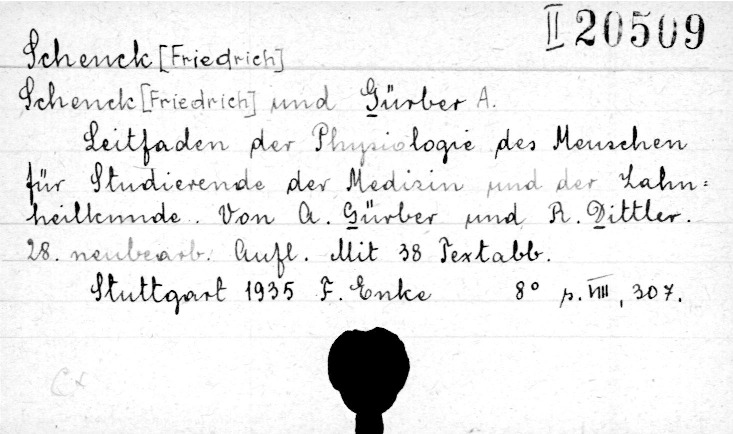 II 20509
Schenck [Friedrich]
Schenck [Friedrich] und Gürber A.
Leitfaden der Physiologie des Menschen
für Studierende der Medizin und der Zahn=
heilkunde. Von A. Gürber und R. Dittler.
28. neubearb. Aufl. Mit 38 Textabb.
Stuttgart 1935 F. Enke 8° p. VIII, 307.